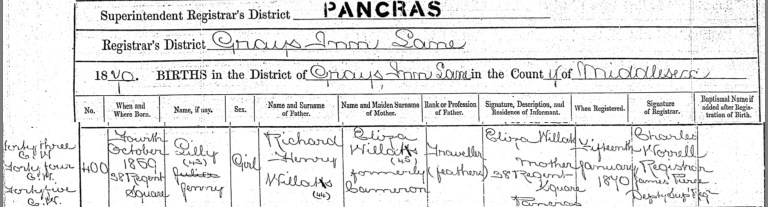 PANCRAS
Superintendent Registrar's District
Registrar's District Grays Inn Lane
1840. BIRTHS in the District of Grays Inn Lane in the County of Middlesex
No. When and Where Born. Name, if any. Sex. Name and Surname of Father. Name and Maiden Surname of Mother. Rank or Profession of Father. Signature, Description, and Residence of Informant. When Registered. Signature of Registrar. Baptismal Name if added after Registration of Birth.
forty three
forty four
forty five
400
Fourth
October
18
38 Regent
Square
(43)
Jenny
Girl
Richard
Henry
Willatts
Eliza
Willatts
(45)
formerly
Cameron
Traveller
(feathers)
Eliza Willatts
mother
38 Regent
Square
Pancras
Fifteenth
January
1840
Charles
Worrell
Registrar
James